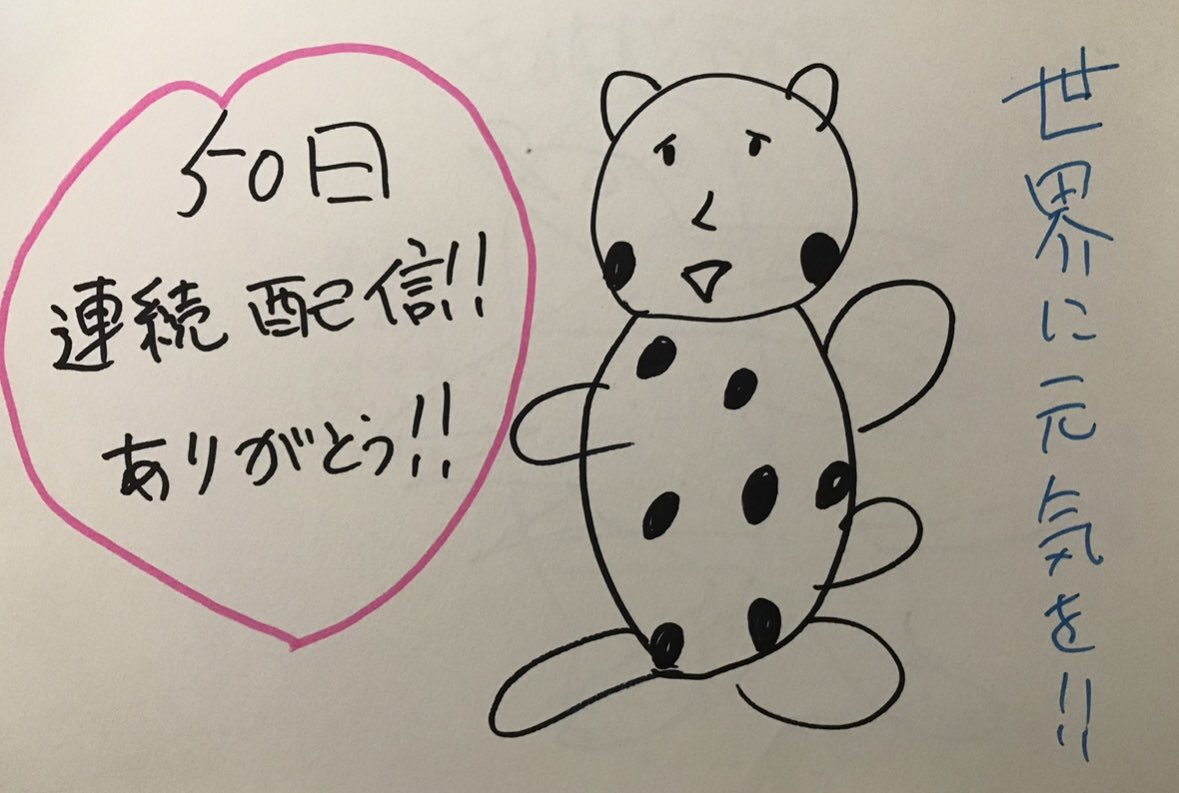 50日
連続配信!!
ありがとう!!
世界に元気を!!